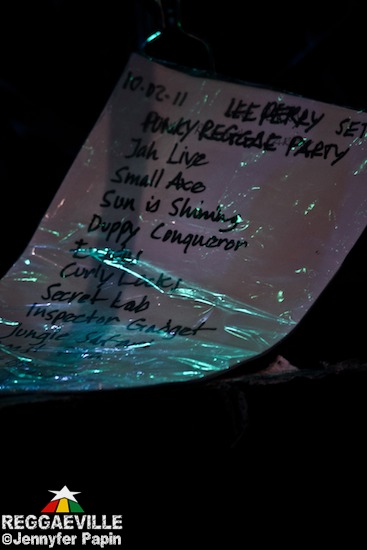 10-02-11 LEE PERRY SET
PUNKY REGGAE PARTY
Jah Live
Small Axe
Sun is Shining
Duppy Conqueror
Curly Locks
Secret Lab
Inspector Gadget
Jungle
REGGAEVILLE
©Jennyfer Papin